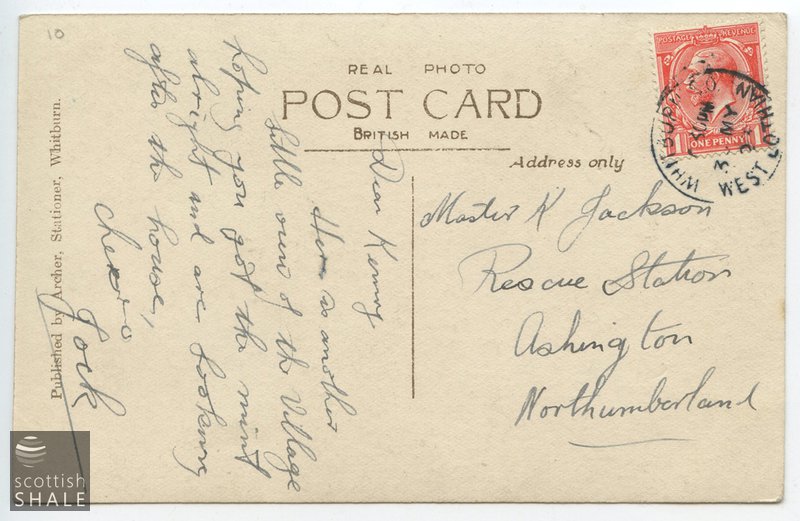 10
REAL PHOTO
POST CARD
BRITISH MADE
Address only
POSTAGE REVENUE
1 ONE PENNY 1
WHITBURN
MY
WEST LOTHIAN
Dear Kenny
Here is another
little view of the Village
hoping you got the mint
alright and are looking
after the house,
cheerio
Jock
Master K Jackson
Rescue Station
Ashington
Northumberland
Published by Archer, Stationer, Whitburn.
scottish
SHALE